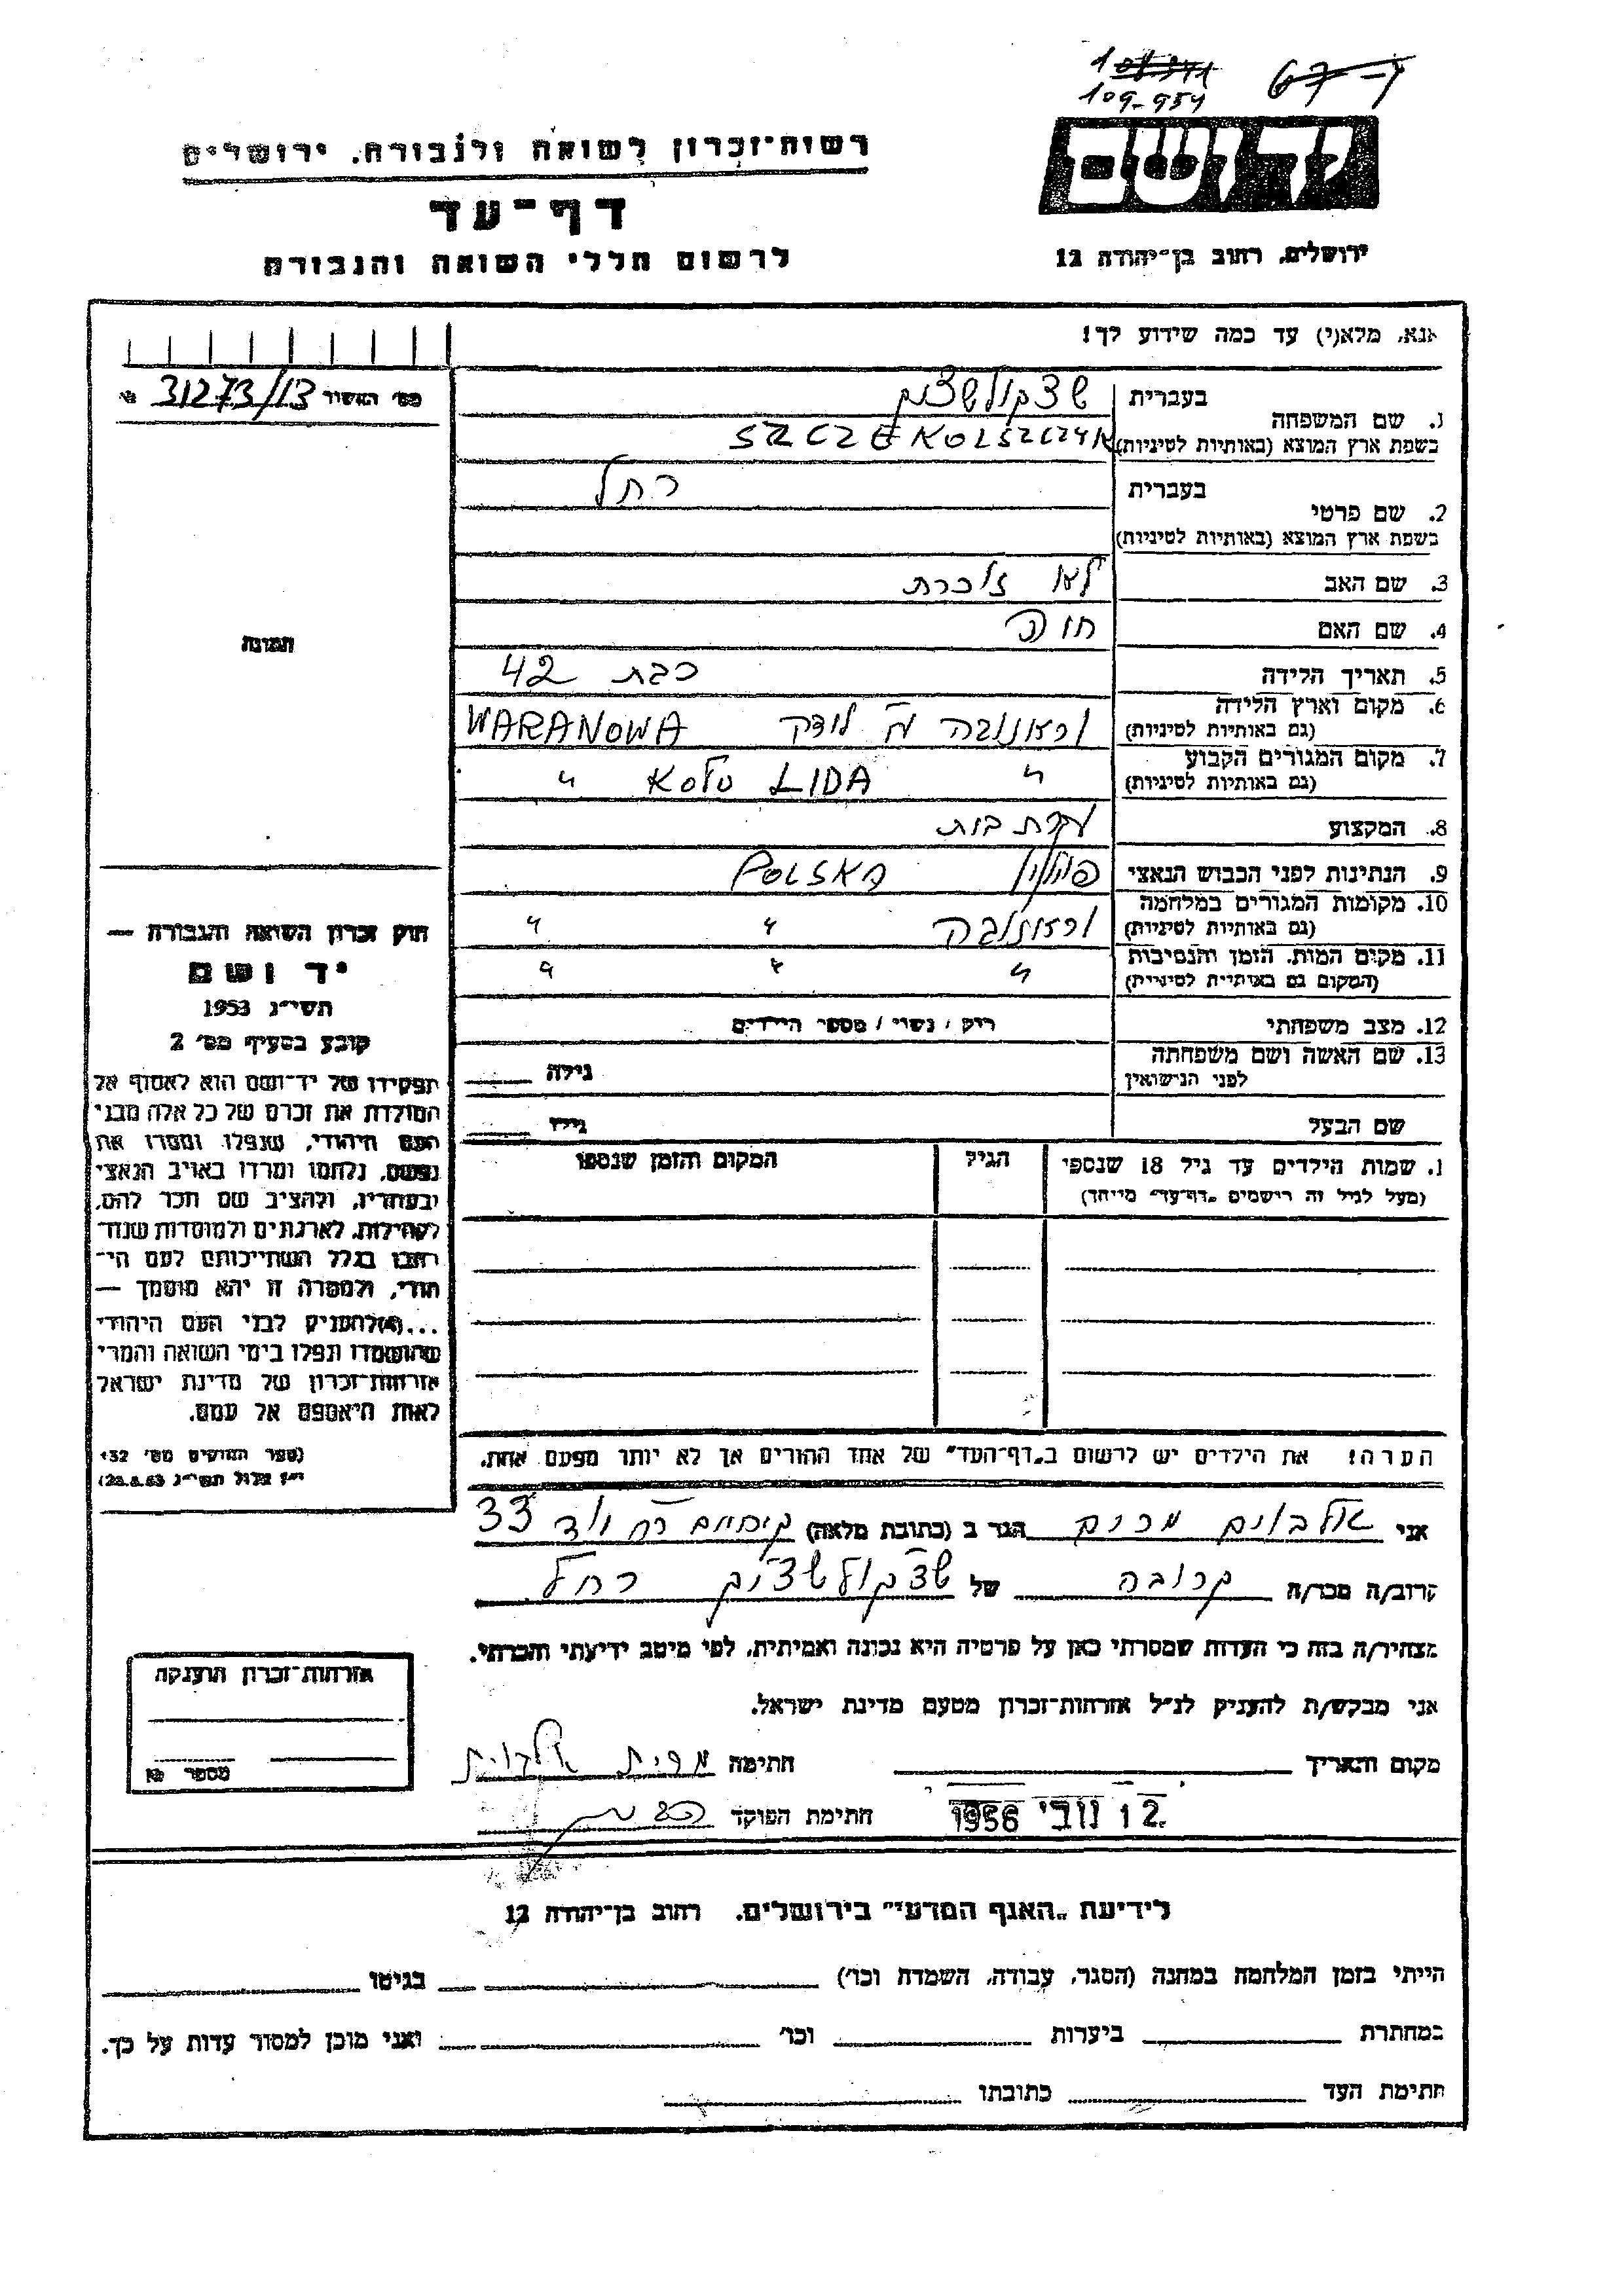 109-954
67-
רשות־זכרון לשואה ולגבורה. ירושלים
יד ושם
דף־עד
לרשום חללי השואה והגבורה
ירושלים. רחוב בן־יהודה 12
אנא. מלא(י) עד כמה שידוע לך!
מס׳ האשור № 31273/13
1. שם המשפחה
בעברית שצקולשציק
בשפת ארץ המוצא (באותיות לטיניות) SZCZEKOLSZCZYK
2. שם פרטי
בעברית רחל
בשפת ארץ המוצא (באותיות לטיניות)
3. שם האב לא זוכרת
4. שם האם
5. תאריך הלידה כבת 42
6. מקום וארץ הלידה
(גם באותיות לטיניות) WARANOWA
7. מקום המגורים הקבוע
(גם באותיות לטיניות) " KOŁO LIDA "
8. המקצוע עקרת בית
9. הנתינות לפני הכבוש הנאצי פולין POLSKA
10. מקומות המגורים במלחמה
(גם באותיות לטיניות) וראנובה " "
11. מקום המות. הזמן והנסיבות
(המקום גם באותיות לטיניות) " " "
12. מצב משפחתי רוק / נשוי / מספר הילדים
13. שם האשה ושם משפחתה
לפני הנישואין גילה
שם הבעל גילו
תמונה
חוק זכרון השואה והגבורה —
יד ושם
תשי״ג 1953
קובע בסעיף מס׳ 2
תפקידו של יד־ושם הוא לאסוף אל
המולדת את זכרם של כל אלה מבני
העם היהודי, שנפלו ומסרו את
נפשם, נלחמו ומרדו באויב הנאצי
ובעוזריו, ולהציב שם וזכר להם,
לקהילות, לארגונים ולמוסדות שנח־
רבו בגלל השתייכותם לעם הי־
הודי, ולמטרה זו יהא מוסמך —
...(4) להעניק לבני העם היהודי
שהושמדו ונפלו בימי השואה והמרי
אזרחות־זכרון של מדינת ישראל
לאות היאספם אל עמם.
(ספר החוקים מס׳ 132
י״ז אלול תשי״ג 28.8.53)
1. שמות הילדים עד גיל 18 שנספו
(מעל לגיל זה רושמים „דף־עד״ מיוחד)
הגיל
המקום והזמן שנספו
הערה! את הילדים יש לרשום ב„דף־העד״ של אחד ההורים אך לא יותר מפעם אחת.
אני הגר ב (כתובת מלאה) 33
קרוב/ה מכר/ה קרובה של שצקולשציק רחל
מצהיר/ה בזה כי העדות שמסרתי כאן על פרטיה היא נכונה ואמיתית, לפי מיטב ידיעתי והכרתי.
אני מבקש/ת להעניק לנ״ל אזרחות־זכרון מטעם מדינת ישראל.
מקום ותאריך חתימה
12 נובי 1956 חתימת הפוקד
אזרחות־זכרון הוענקה
מספר №
לידיעת „האגף המדעי״ בירושלים. רחוב בן־יהודה 12
הייתי בזמן המלחמה במחנה (הסגר, עבודה, השמדה וכו׳) בגיטו
במחתרת ביערות וכו׳ ואני מוכן למסור עדות על כך.
חתימת העד כתובתו